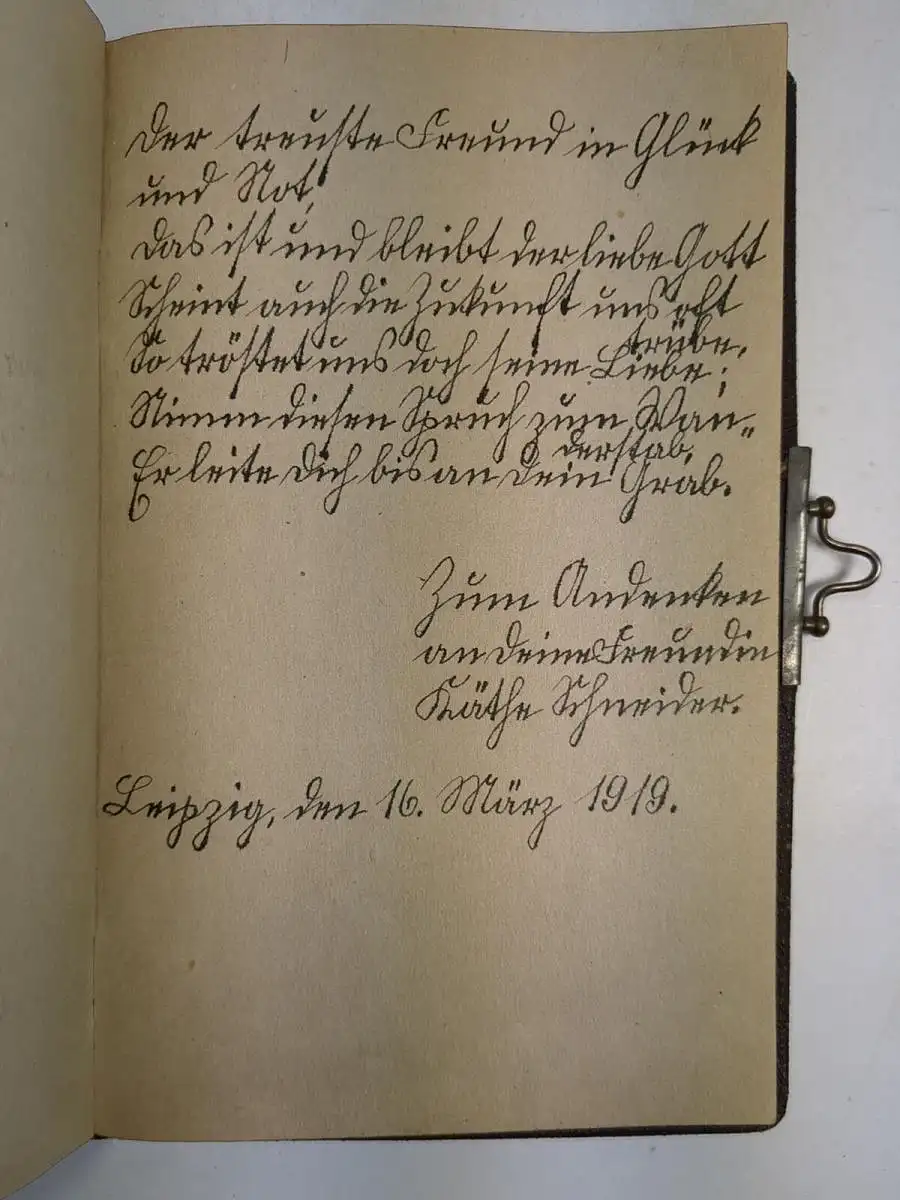 Der treuste Freund in Glück
und Not,
das ist und bleibt der liebe Gott
Scheint auch die Zukunft uns oft
trübe,
So tröstet uns doch seine Liebe;
Nimm diesen Spruch zum Wan-
derstab,
Er leite dich bis an dein Grab.
Zum Andenken
an deine Freundin
Käthe Schneider.
Leipzig, den 16. März 1919.